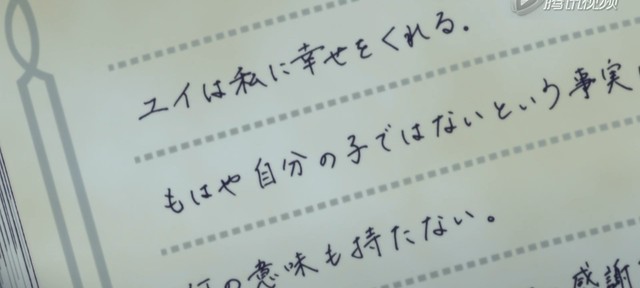 腾讯视频
ユイは私に幸せをくれる.
もはや自分の子ではないという事実
の意味も持たない。
感謝